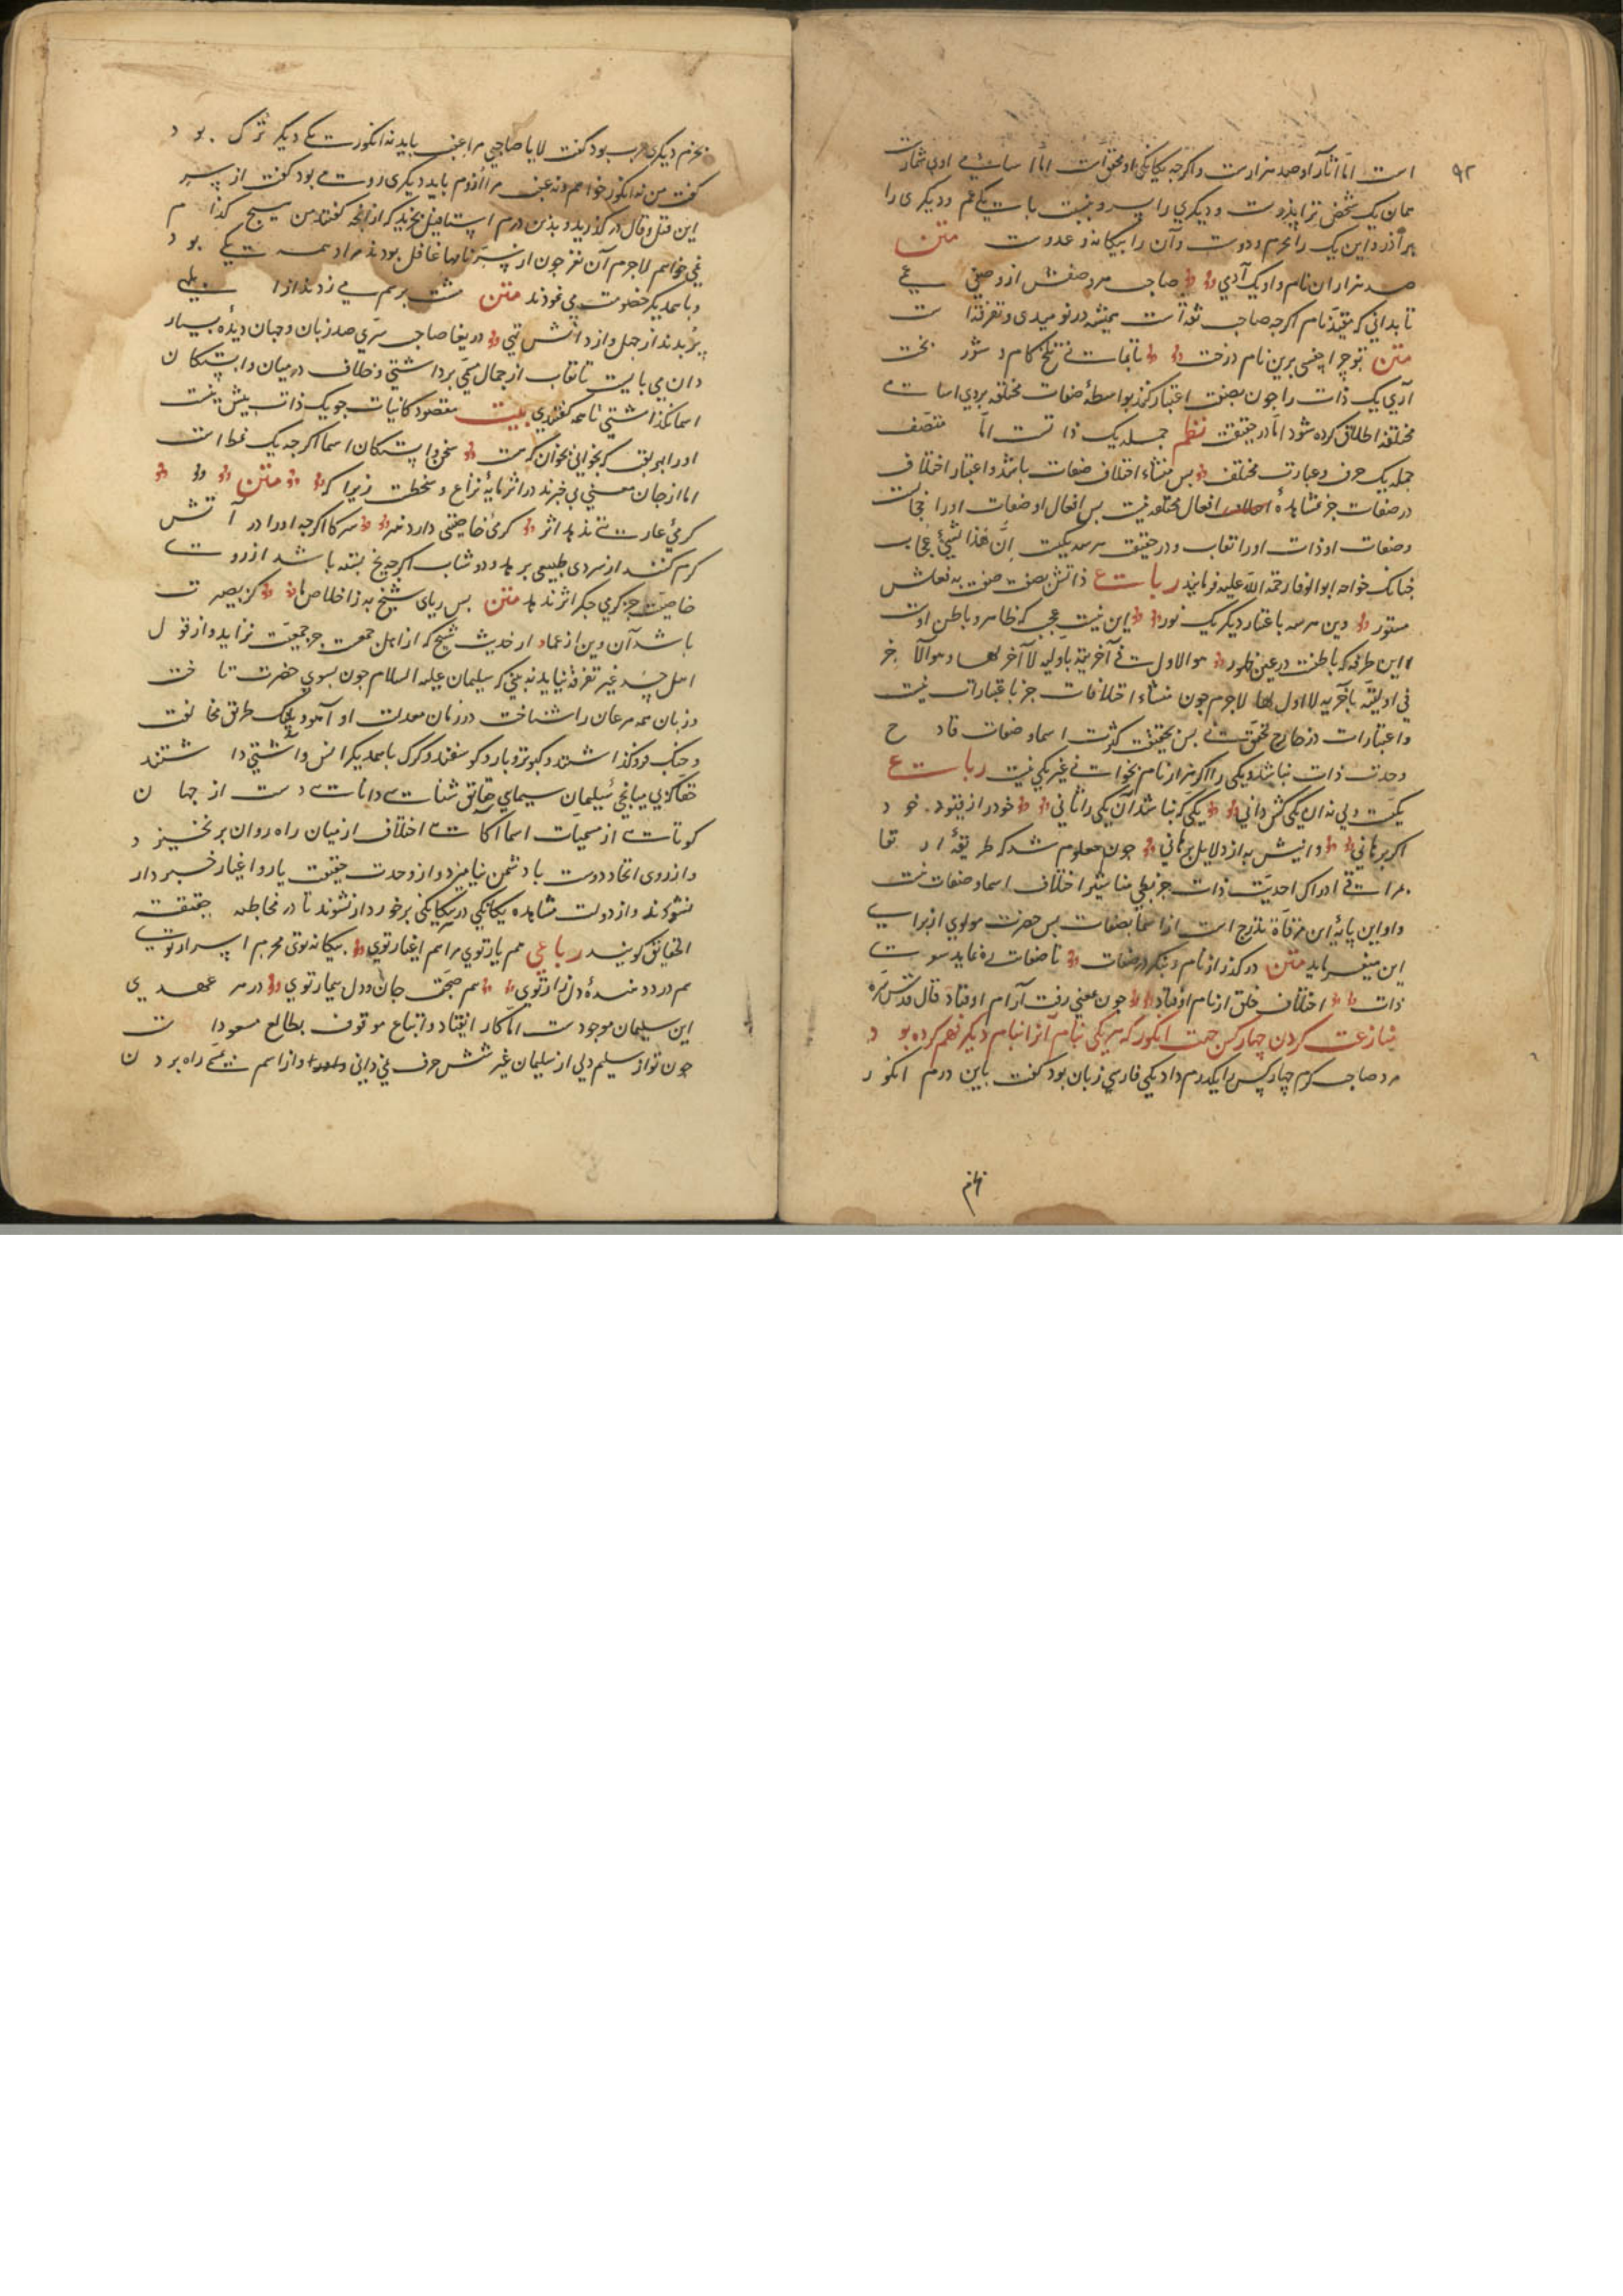 ۹۲
است اما آثار او صد هزارست و اگرجه یکانکی او محقق است اما اسامئ او بی شمارست
همان یک شخص ترا پدرست و دیکری را پسر و نسبت با یکی عم و دیکری را
برادر و این یک را محرم و دوست و آن را بیکانه و عدوست متن
صد هزاران نام و او یک آدمی صاحب هر وصفش از وصفی عمی
تا بدانی که مقید نام اگرجه صاحب ثقه است همیشه در نومیدی و تفرقه است
متن تو چرا جفسی برین نام درخت تا بمانی تلخ کام و شور بخت
آری یک ذات را جون بصفت اعتبار کنند بواسطهٔ صفات مختلفه بروی اسامی
مختلفه اطلاق کرده شود اما در حقیقت نظم جمله یک ذاتست اما متصف
جمله یک حرف و عبارت مختلف بس منشاء اختلاف صفات باشد و اعتبار اختلاف
در صفات جز مشاهدهٔ افعال مختلفه نیست بس افعال او صفات او را حجابست
و صفات او ذات او را نقاب و در حقیقت هر سه یکیست اِنَّ هٰذا لشیءٌ عُجاب
جنانک خواجه ابو الوفا رحمة الله علیه فرمایند رباعی ذاتش بصفت صفت به فعلش
مستور وین هر سه باعتبار دیکر یک نور این نیست عجب که ظاهر و باطن اوست
این طرفه که باطنست در عین ظهور هو الاول فی آخریته باولیة لا آخر لها و هو الآخر
فی اولیته بآخریة لا اول لها لاجرم جون منشاء اختلافات جز باعتبارات نیست
و اعتبارات در خارج تحقق نی بس بحقیقت کثرت اسما و صفات قادح
وحدت ذات نباشد و یکی را اکر هزار نام بخوانی غیر یکی نیست رباعی
یکیست ولی نه آن یکی کش دانی یکی که نباشد آن یکی را ثانی خود را ز قیود خود
اکر برهانی دانیش به از دلایل برهانی جون معلوم شد که طریقهٔ ارتقا
مرات ادراک احدیت ذات جز بطی مناشیر اختلاف اسما و صفات نیست
و اولین پایهٔ این مرقاة تدرج است از اسما بصفات بس حضرت مولوی از برای
این میفرماید متن در کذر از نام و بنکر در صفات تا صفات ره نماید سوی
ذات اختلاف خلق از نام اوفتاد جون بمعنی رفت آرام اوفتاد قال قدس سره
منازعت کردن چهار کس جهت انکور که هر یکی بنام آنرا بنام دیکر فهم کرده بود
مرد صاحب کرم چهار کس را یکدرم داد یکی فارسی زبان بود کفت باین درم انکور
بخرم
بخرم دیکری عرب بود کفت لا یا صاحبی مرا عنب باید نه انکور یکی دیکر ترک بود
کفت من نه انکور خواهم و نه عنب مرا اُزوم باید دیکری رومی بود کفت از پسر
این قیل و قال در کذرید و بذین درم استافیل بخرید که از انجه کفتند من هیچ کدام
نمی خواهم لاجرم آن نفر جون از سرّ نامها غافل بودند مراد همه یکی بود
و باهمدیکر خصومت می نمودند متن مشت بر هم می زدند از ابلهی
پُر بدند از جهل و از دانش تهی دریغا صاحب سرّی صد زبان و جهان دیدهٔ بسیار
دان می بایست تا نقاب از جمال یکی برداشتی و خلاف در میان وابستکان
اسما نکذاشتی تا همه کفتندی بیت مقصود کاینات جو یک ذات بیش نیست
او را بهر لقب که بخوانی بخوان که هست سخن وابستکان اسما اکرجه یک نمط است
اما از جان معنی بی خبرند در اثر مایهٔ نزاع و سخطست زیرا که متن
کرمئ عاریتی ندهد اثر کرمئ خاصیتی دارد هنر سرکه را کرجه او را در آتش
کرم کنند از سردی طبیعی بر هد و دوشاب اکرجه یخ بسته باشد از روی
خاصیت جز کرمی جکر اثر ندهد متن بس ریای شیخ به ز اخلاص ما کز بصیرت
باشد آن وین از عماد از حدیث شیخ که از اهل جمعیت جز جمعیت نزاید و از قول
اهل حسد غیر تفرقه نیاید نه بینی که سلیمان علیه السلام جون بسوی حضرت تاخت
و زبان همه مرغان را شناخت در زمان معدلت او آهو و پلنک طریق مخالفت
و جنک فرو کذاشتند و کبوتر و باز و کوسفند و کرک باهمدیکر انس و آشتی داشتند
حقا که بی میانجئ سلیمان سیمای حقایق شناسی دانای دست از جهان
کوتاهی از مسمیات اسما آکاهی اختلاف از میان راه روان بر نخیزد
و از روی اتحاد دوست با دشمن نیامیزد و از وحدت حقیقت یار و اغیار خبردار
نشوند و از دولت مشاهده یکانکی در بیکانکی برخوردار نشوند تا در مخاطبه حقیقة
الحقایق کویند رباعی هم یار توی مرا هم اغیار توی بیکانه توی محرم اسرار توی
هم درد دهندهٔ دل زار توی هم صحت جان و دل بیمار توی در هر عهدی
این سلیمان موجودست اما کار انقیاد و اتباع موقوف بطالع مسعود است
جون تو از سلیم دلی از سلیمان غیر شش حرف نمی دانی و از اسم بمسمی راه بردن